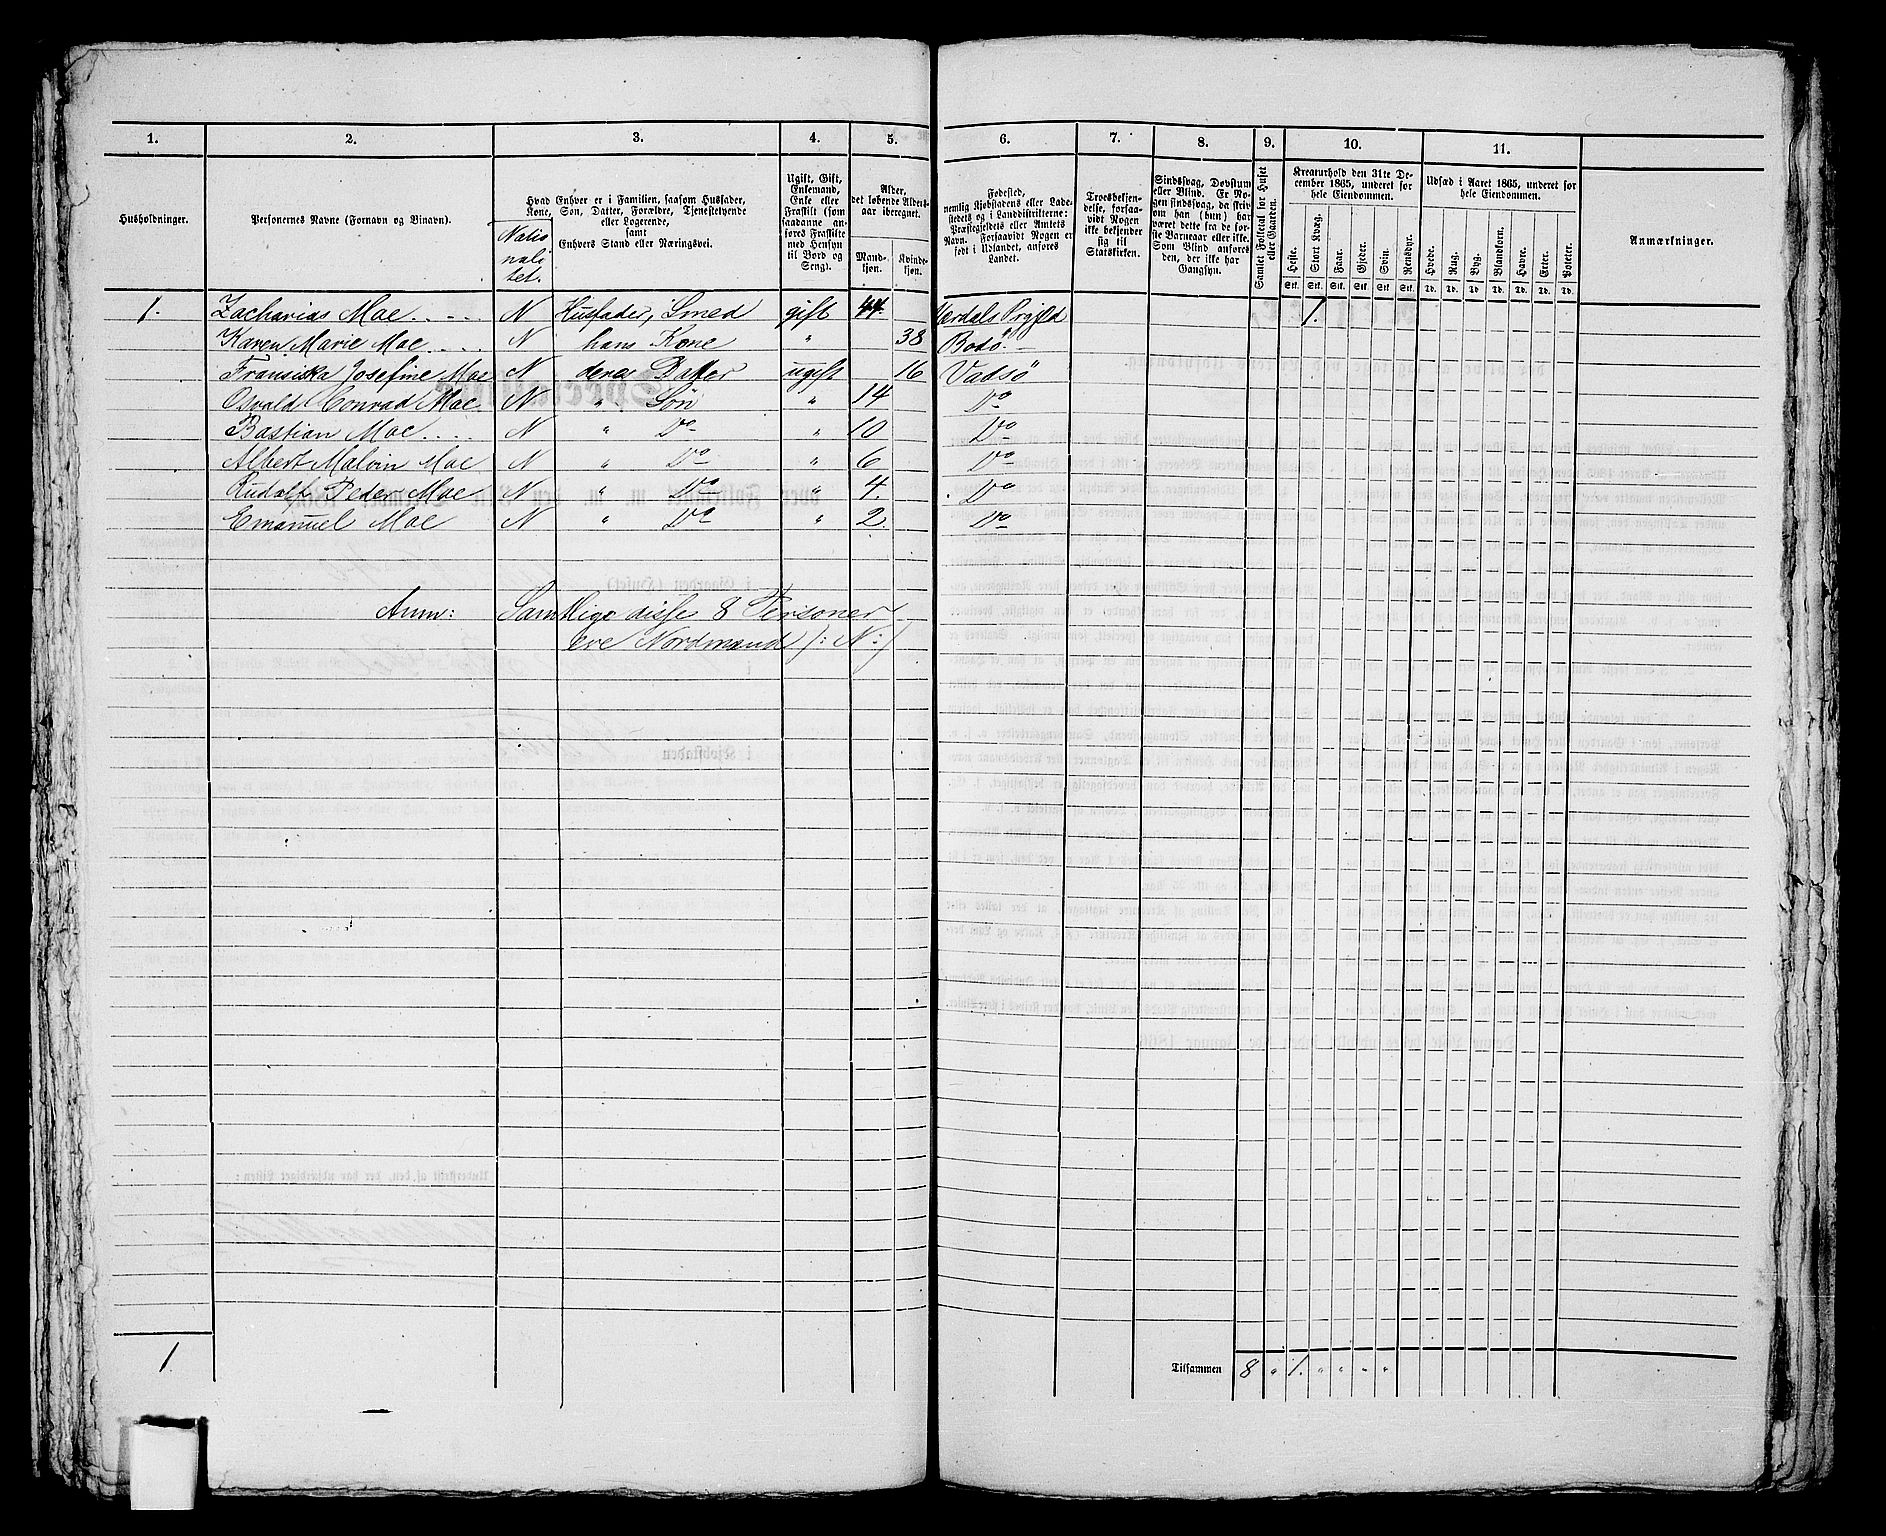 1. 2. 3. 4. 5. 6. 7. 8. 9. 10. 11.
Husholdninger.
Personernes Navne (Fornavn og Binavn).
Hvad Enhver er i Familien, saasom Husfader,
Kone, Søn, Datter, Forældre, Tjenestetyende
eller Logerende,
samt
Enhvers Stand eller Næringsvei.
Natio
nali
tet.
Ugift, Gift,
Enkemand,
Enke eller
Fraskilt (som
saadanne an-
føres Fraskilte
med Hensyn
til Bord og
Seng).
Alder,
det løbende Alders-
aar iberegnet.
Mand-
kjøn.
Kvinde-
kjøn.
Fødested,
nemlig Kjøbstadens eller Lade-
stedets og i Landdistrikterne:
Præstegjeldets eller Amtets
Navn. Forsaavidt Nogen er
født i Udlandet, anføres
Landet.
Troesbekjen-
delse, forsaa-
vidt Nogen
ikke bekjender
sig til
Statskirken.
Sindssvag, Døvstum
eller Blind. Er No-
gen sindssvag, da skri-
ves om han (hun) har
været dette fra de før-
ste Barneaar eller ikke.
Som Blind anføres
den, der ikke har
Gangsyn.
Samlet Folketal for Huset
eller Gaarden.
Kreaturhold den 31te De-
cember 1865, underet for
hele Eiendommen.
Heste. Stort Kvæg. Faar. Gjeder. Svin. Rensdyr.
Stk. Stk. Stk. Stk. Stk. Stk.
Udsæd i Aaret 1865, underet for
hele Eiendommen.
Hvede. Rug. Byg. Blandkorn. Havre. Erter. Poteter.
Td. Td. Td. Td. Td. Td. Td.
Anmærkninger.
1. Zacharias Moe .. .. N Husfader, Smed gift 44 Værdals Prgjeld 1.
Karen Marie Moe .... N hans Kone " 38 Bodø
Fransiska Josefine Moe N deres Datter ugift 16 Vadsø
Osvald Conrad Moe. N " Søn " 14 Do
Bastian Moe .... N " Do " 10 Do
Albert Malvin Moe N " Do " 6 Do
Rudolf Peder Moe N " Do " 4. Do
Emanuel Moe N " Do " 2. Do
Anm: Samtlige disse 8 Personer
ere Nordmænd /: N :/
1. Tilsammen 8 " 1. " " " "